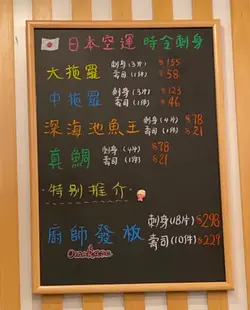 日本空運 時令刺身
大拖羅 刺身(3片) $155
壽司(1件) $58
中拖羅 刺身(3片) $123
壽司(1件) $46
深海池魚王 刺身(4片) $78
壽司(1件) $21
真鯛 刺身(4片) $78
壽司(1件) $21
·特别推介·
廚師發板 刺身(18片) $298
Omakase 壽司(10件) $229